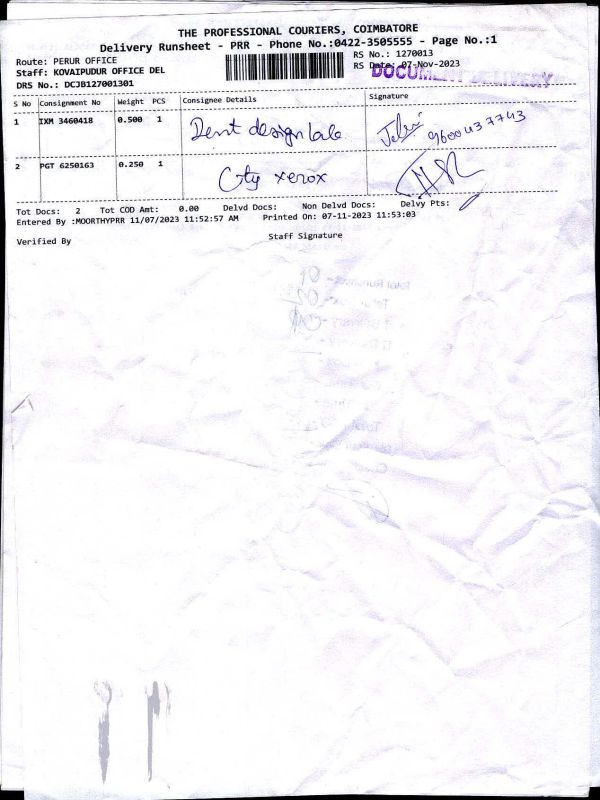 THE PROFESSIONAL COURIERS, COIMBATORE
Delivery Runsheet - PRR - Phone No.:0422-3505555 - Page No.:1
Route: PERUR OFFICE
RS No.: 1270013
Staff: KOVAIPUDUR OFFICE DEL
RS Date: 07-Nov-2023
DOCUMENT DELIVERY
DRS No.: DCJB127001301
S No Consignment No Weight PCS Consignee Details Signature
1 IXM 3460418 0.500 1 Dent design lab 9600437743
2 PGT 6250163 0.250 1 City xerox
Tot Docs: 2 Tot COD Amt: 0.00 Delvd Docs: Non Delvd Docs: Delvy Pts:
Entered By :MOORTHYPRR 11/07/2023 11:52:57 AM Printed On: 07-11-2023 11:53:03
Verified By Staff Signature